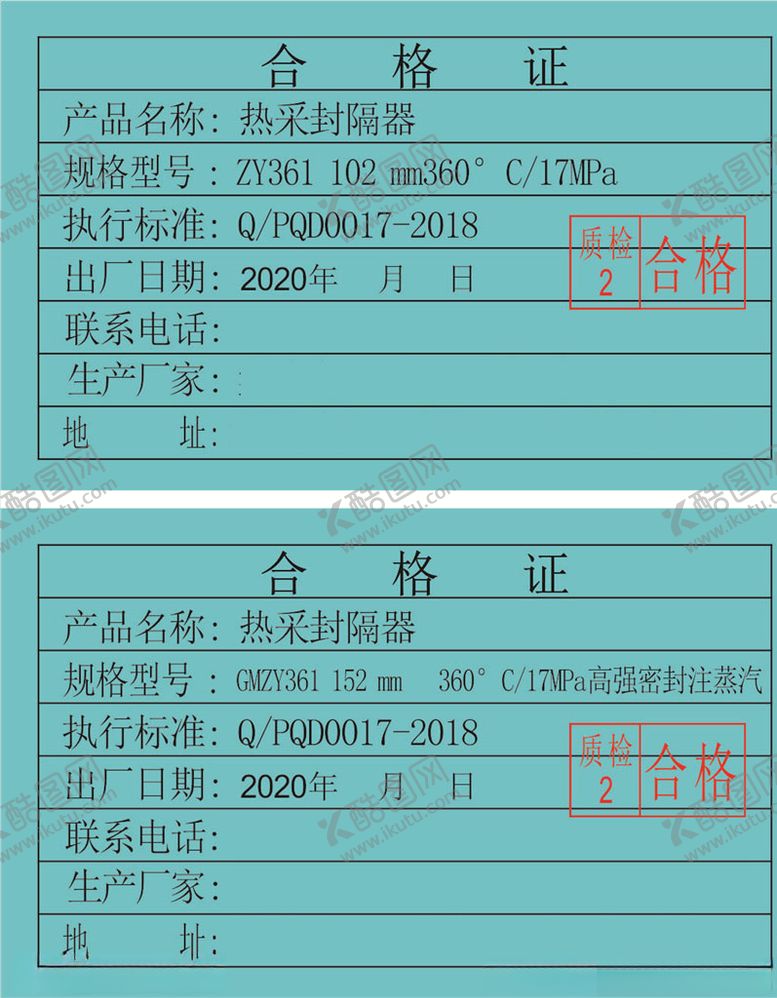 合 格 证
产品名称: 热采封隔器
规格型号 : ZY361 102 mm360° C/17MPa
执行标准: Q/PQD0017-2018
质检 2 合格
出厂日期: 2020年 月 日
联系电话:
生产厂家:
地 址:
合 格 证
产品名称: 热采封隔器
规格型号 : GMZY361 152 mm 360° C/17MPa高强密封注蒸汽
执行标准: Q/PQD0017-2018
质检 2 合格
出厂日期: 2020年 月 日
联系电话:
生产厂家:
地 址:
酷图网
www.ikutu.com